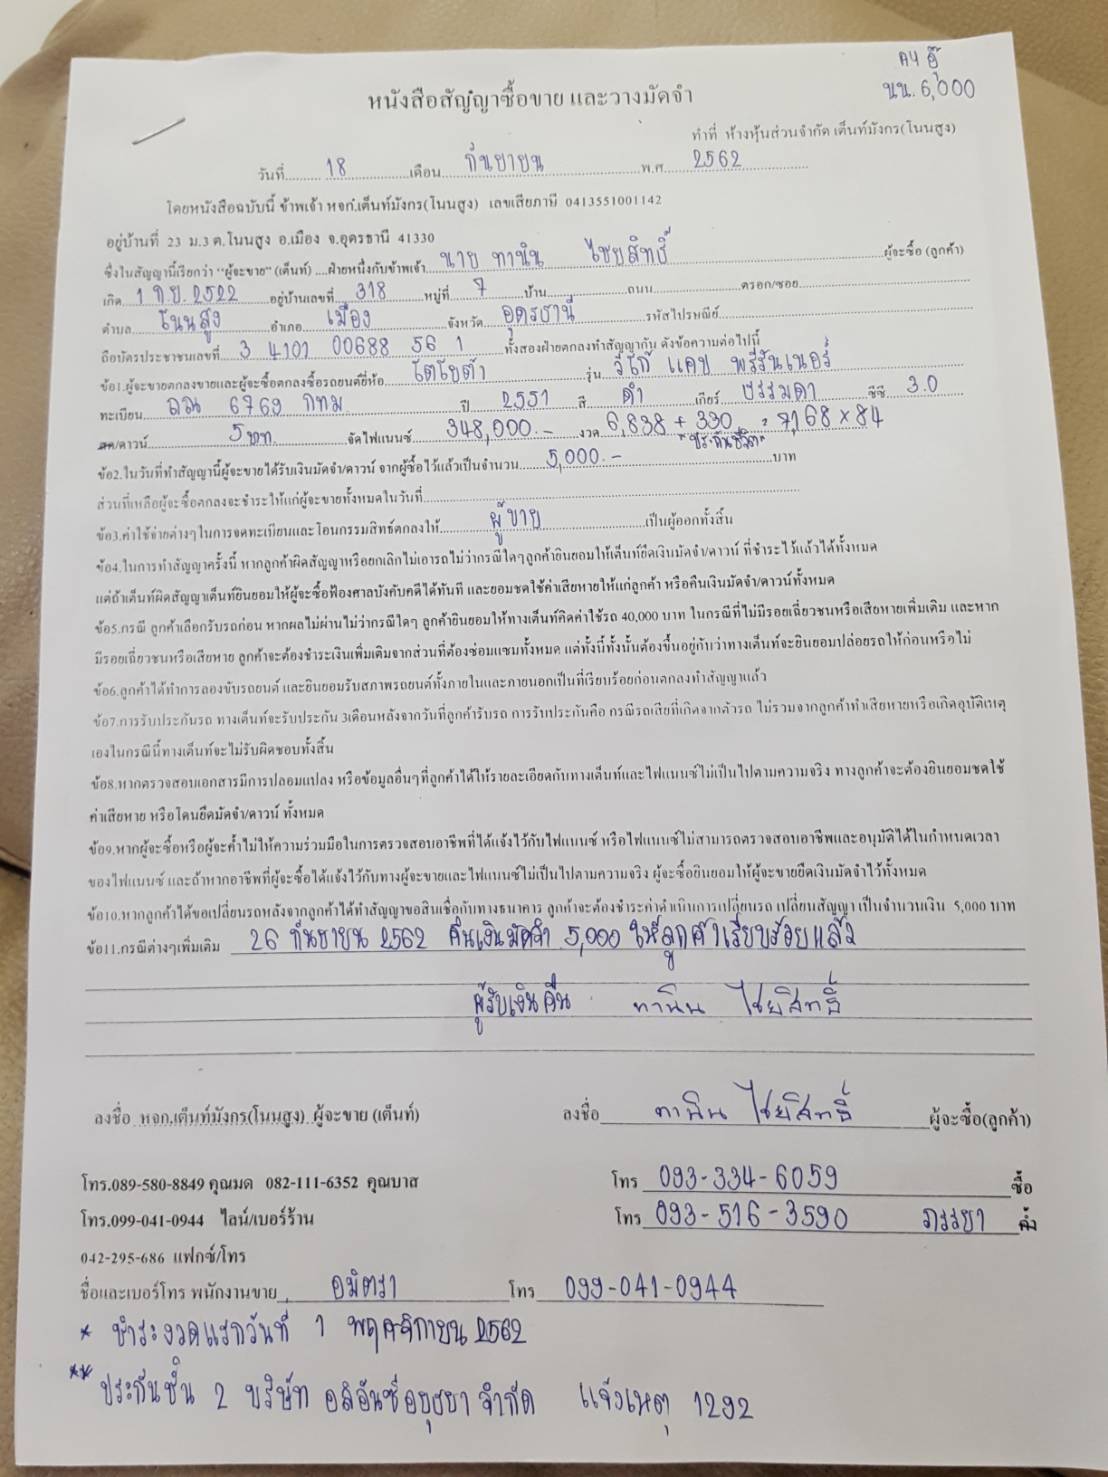 นน. 6,000
หนังสือสัญญาซื้อขาย และวางมัดจำ
ทำที่ ห้างหุ้นส่วนจำกัด เต็นท์มังกร(โนนสูง)
วันที่ 18 เดือน กันยายน พ.ศ. 2562
โดยหนังสือฉบับนี้ ข้าพเจ้า หจก.เต็นท์มังกร(โนนสูง) เลขเสียภาษี 0413551001142
อยู่บ้านที่ 23 ม.3 ต.โนนสูง อ.เมือง จ.อุดรธานี 41330
ซึ่งในสัญญานี้เรียกว่า "ผู้จะขาย" (เต็นท์) ....ฝ่ายหนึ่งกับข้าพเจ้า นาย ทานิน ไชยสิทธิ์ ผู้จะซื้อ (ลูกค้า)
เกิด 1 ก.ย. 2522 อยู่บ้านเลขที่ 318 หมู่ที่ 7 บ้าน ถนน ตรอก/ซอย
ตำบล โนนสูง อำเภอ เมือง จังหวัด อุดรธานี รหัสไปรษณีย์
ถือบัตรประชาชนเลขที่ 3 4101 00688 56 1 ทั้งสองฝ่ายตกลงทำสัญญากัน ดังข้อความต่อไปนี้
ข้อ1.ผู้จะขายตกลงขายและผู้จะซื้อตกลงซื้อรถยนต์ยี่ห้อ โตโยต้า รุ่น วีโก้ แคป พรีรันเนอร์
ทะเบียน ถณ 6769 กทม ปี 2551 สี ดำ เกียร์ ธรรมดา ซีซี 3.0
สด/ดาวน์ 5 บาท จัดไฟแนนซ์ 348,000.- งวด 6,838 + 330 = 7,168 x 84
*ประกันชีวิต*
ข้อ2.ในวันที่ทำสัญญานี้ผู้จะขายได้รับเงินมัดจำ/ดาวน์ จากผู้ซื้อไว้แล้วเป็นจำนวน 5,000.- บาท
ส่วนที่เหลือผู้จะซื้อตกลงจะชำระให้แก่ผู้จะขายทั้งหมดในวันที่
ข้อ3.ค่าใช้จ่ายต่างๆในการจดทะเบียนและโอนกรรมสิทธิ์ตกลงให้ ผู้ขาย เป็นผู้ออกทั้งสิ้น
ข้อ4.ในการทำสัญญาครั้งนี้ หากลูกค้าผิดสัญญาหรือยกเลิกไม่เอารถไม่ว่ากรณีใดๆลูกค้ายินยอมให้เต็นท์ยึดเงินมัดจำ/ดาวน์ ที่ชำระไว้แล้วได้ทั้งหมด
แต่ถ้าเต็นท์ผิดสัญญาเต็นท์ยินยอมให้ผู้จะซื้อฟ้องศาลบังคับคดีได้ทันที และยอมชดใช้ค่าเสียหายให้แก่ลูกค้า หรือคืนเงินมัดจำ/ดาวน์ทั้งหมด
ข้อ5.กรณี ลูกค้าเลือกรับรถก่อน หากผลไม่ผ่านไม่ว่ากรณีใดๆ ลูกค้ายินยอมให้ทางเต็นท์คิดค่าใช้รถ 40,000 บาท ในกรณีที่ไม่มีรอยเฉี่ยวชนหรือเสียหายเพิ่มเติม และหาก
มีรอยเฉี่ยวชนหรือเสียหาย ลูกค้าจะต้องชำระเงินเพิ่มเติมจากส่วนที่ต้องซ่อมแซมทั้งหมด แต่ทั้งนี้ทั้งนั้นต้องขึ้นอยู่กับว่าทางเต็นท์จะยินยอมปล่อยรถให้ก่อนหรือไม่
ข้อ6.ลูกค้าได้ทำการลองขับรถยนต์ และยินยอมรับสภาพรถยนต์ทั้งภายในและภายนอกเป็นที่เรียบร้อยก่อนตกลงทำสัญญาแล้ว
ข้อ7.การรับประกันรถ ทางเต็นท์จะรับประกัน 3เดือนหลังจากวันที่ลูกค้ารับรถ การรับประกันคือ กรณีรถเสียที่เกิดจากตัวรถ ไม่รวมจากลูกค้าทำเสียหายหรือเกิดอุบัติเหตุ
เองในกรณีนี้ทางเต็นท์จะไม่รับผิดชอบทั้งสิ้น
ข้อ8.หากตรวจสอบเอกสารมีการปลอมแปลง หรือข้อมูลอื่นๆที่ลูกค้าได้ให้รายละเอียดกับทางเต็นท์และไฟแนนซ์ไม่เป็นไปตามความจริง ทางลูกค้าจะต้องยินยอมชดใช้
ค่าเสียหาย หรือโดนยึดมัดจำ/ดาวน์ ทั้งหมด
ข้อ9.หากผู้จะซื้อหรือผู้จะค้ำไม่ให้ความร่วมมือในการตรวจสอบอาชีพที่ได้แจ้งไว้กับไฟแนนซ์ หรือไฟแนนซ์ไม่สามารถตรวจสอบอาชีพและอนุมัติได้ในกำหนดเวลา
ของไฟแนนซ์ และถ้าหากอาชีพที่ผู้จะซื้อได้แจ้งไว้กับทางผู้จะขายและไฟแนนซ์ไม่เป็นไปตามความจริง ผู้จะซื้อยินยอมให้ผู้จะขายยึดเงินมัดจำไว้ทั้งหมด
ข้อ10.หากลูกค้าได้ขอเปลี่ยนรถหลังจากลูกค้าได้ทำสัญญาขอสินเชื่อกับทางธนาคาร ลูกค้าจะต้องชำระค่าดำเนินการเปลี่ยนรถ เปลี่ยนสัญญา เป็นจำนวนเงิน 5,000 บาท
ข้อ11.กรณีต่างๆเพิ่มเติม 26 กันยายน 2562 คืนเงินมัดจำ 5,000 ให้ลูกค้าเรียบร้อยแล้ว
ผู้รับเงินคืน ทานิน ไชยสิทธิ์
ลงชื่อ หจก.เต็นท์มังกร(โนนสูง) ผู้จะขาย (เต็นท์) ลงชื่อ ทานิน ไชยสิทธิ์ ผู้จะซื้อ(ลูกค้า)
โทร.089-580-8849 คุณมด 082-111-6352 คุณบาส โทร 093-334-6059 ซื้อ
โทร.099-041-0944 ไลน์/เบอร์ร้าน โทร 093-516-3590 ภรรยา ค้ำ
042-295-686 แฟกซ์/โทร
ชื่อและเบอร์โทร พนักงานขาย อมิตรา โทร 099-041-0944
* ชำระงวดแรกวันที่ 1 พฤศจิกายน 2562
** ประกันชั้น 2 บริษัท อลิอันซ์อยุธยา จำกัด แจ้งเหตุ 1292